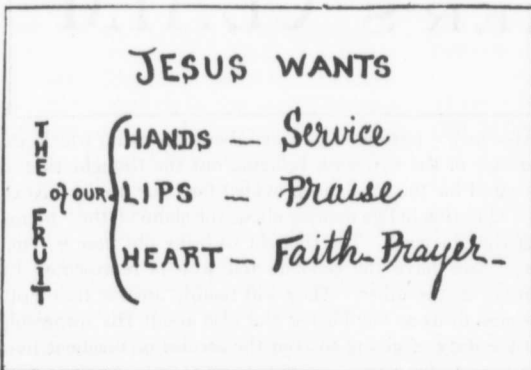 JESUS WANTS
THE FRUIT
of OUR
HANDS — Service
LIPS — Praise
HEART — Faith - Prayer -